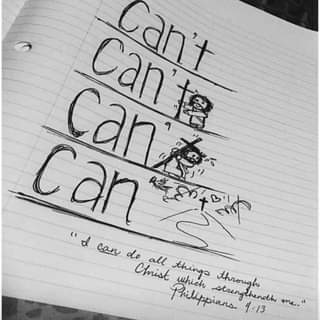 Can't
Can't
Can'
Can
"I can do all things through
Christ which strengtheneth me."
Philippians 4:13